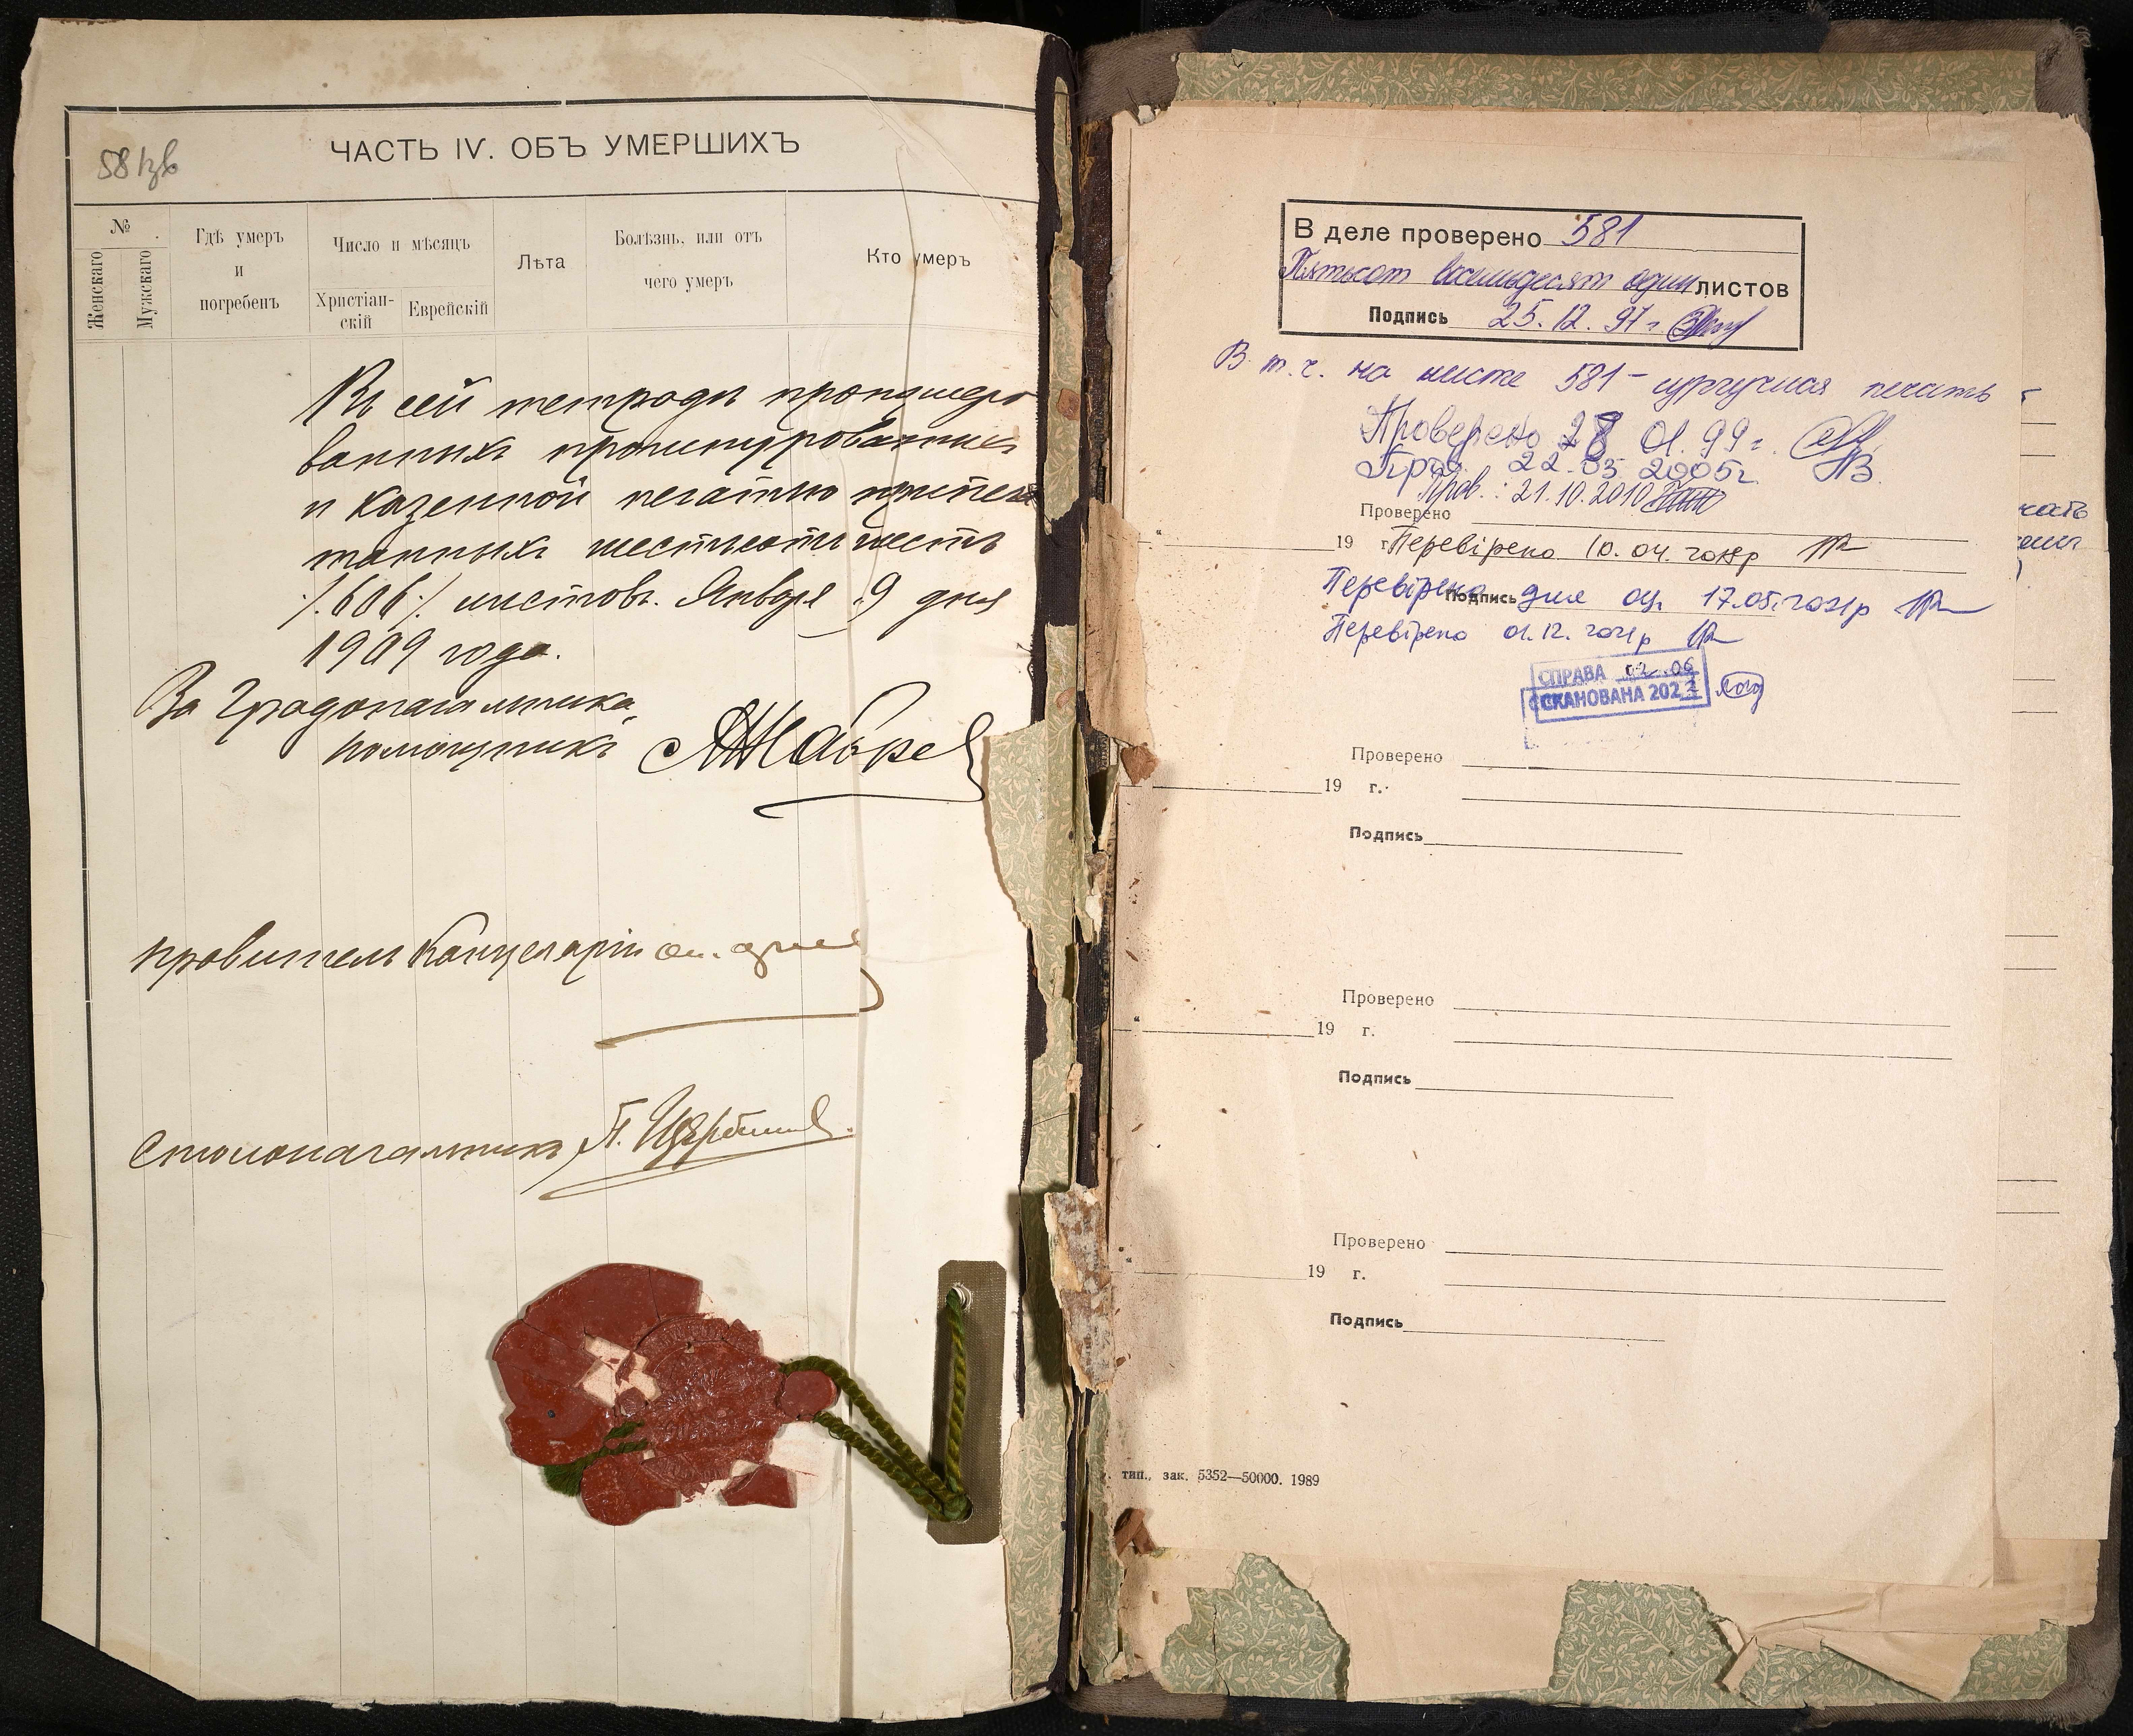 581зв
ЧАСТЬ IV. ОБЪ УМЕРШИХЪ
№
Женскаго
Мужскаго
Гдѣ умеръ
и
погребенъ
Число и мѣсяцъ
Христіан-
скій
Еврейскій
Лѣта
Болѣзнь, или отъ
чего умеръ
Кто умеръ
Въ сей тетради прошнуро
ванныхъ пронумерованныхъ
и казенной печатью припеча
танныхъ шестьсотъ шесть
/.606./ листовъ. Января 9 дня
1909 года.
За Градоначальника,
помощникъ
Правитель Канцеляріи
Столоначальникъ П.
В деле проверено 581
Пятьсот восемьдесят один листов
Подпись 25.12.97 г.
В т.ч. на листе 581 - сургучная печать
Проверено 28 01.99 г.
22.03 2005г.
Пров.: 21.10.2010
Проверено
19 г.
Перевірено 10.04.
Подпись
Перевірено для оц. 17.05.2021р
Перевірено 01.12.2021р
СПРАВА 02.06
СКАНОВАНА 2022
Проверено
19 г.
Подпись
Проверено
19 г.
Подпись
Проверено
19 г.
Подпись
тип., зак. 5352—50000. 1989